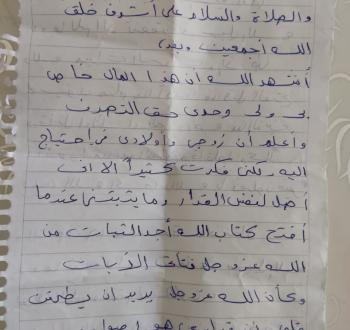 والصلاة والسلام على أشرف خلق
الله أجمعين وبعد،
أشهد الله ان هذا المال خاص
بى ولى وحدى حق التصرف
واعلم أن زوجى وأولادى فى احتياج
اليه ولكنى فكرت كثيراً الاف
أصل لنفس القرار وما يثبتنى عندما
أفتح كتاب الله أجد الثبات من
الله عز وجل فتأتى الأيات
وكأن الله عز وجل يريد ان يطمئن
هو